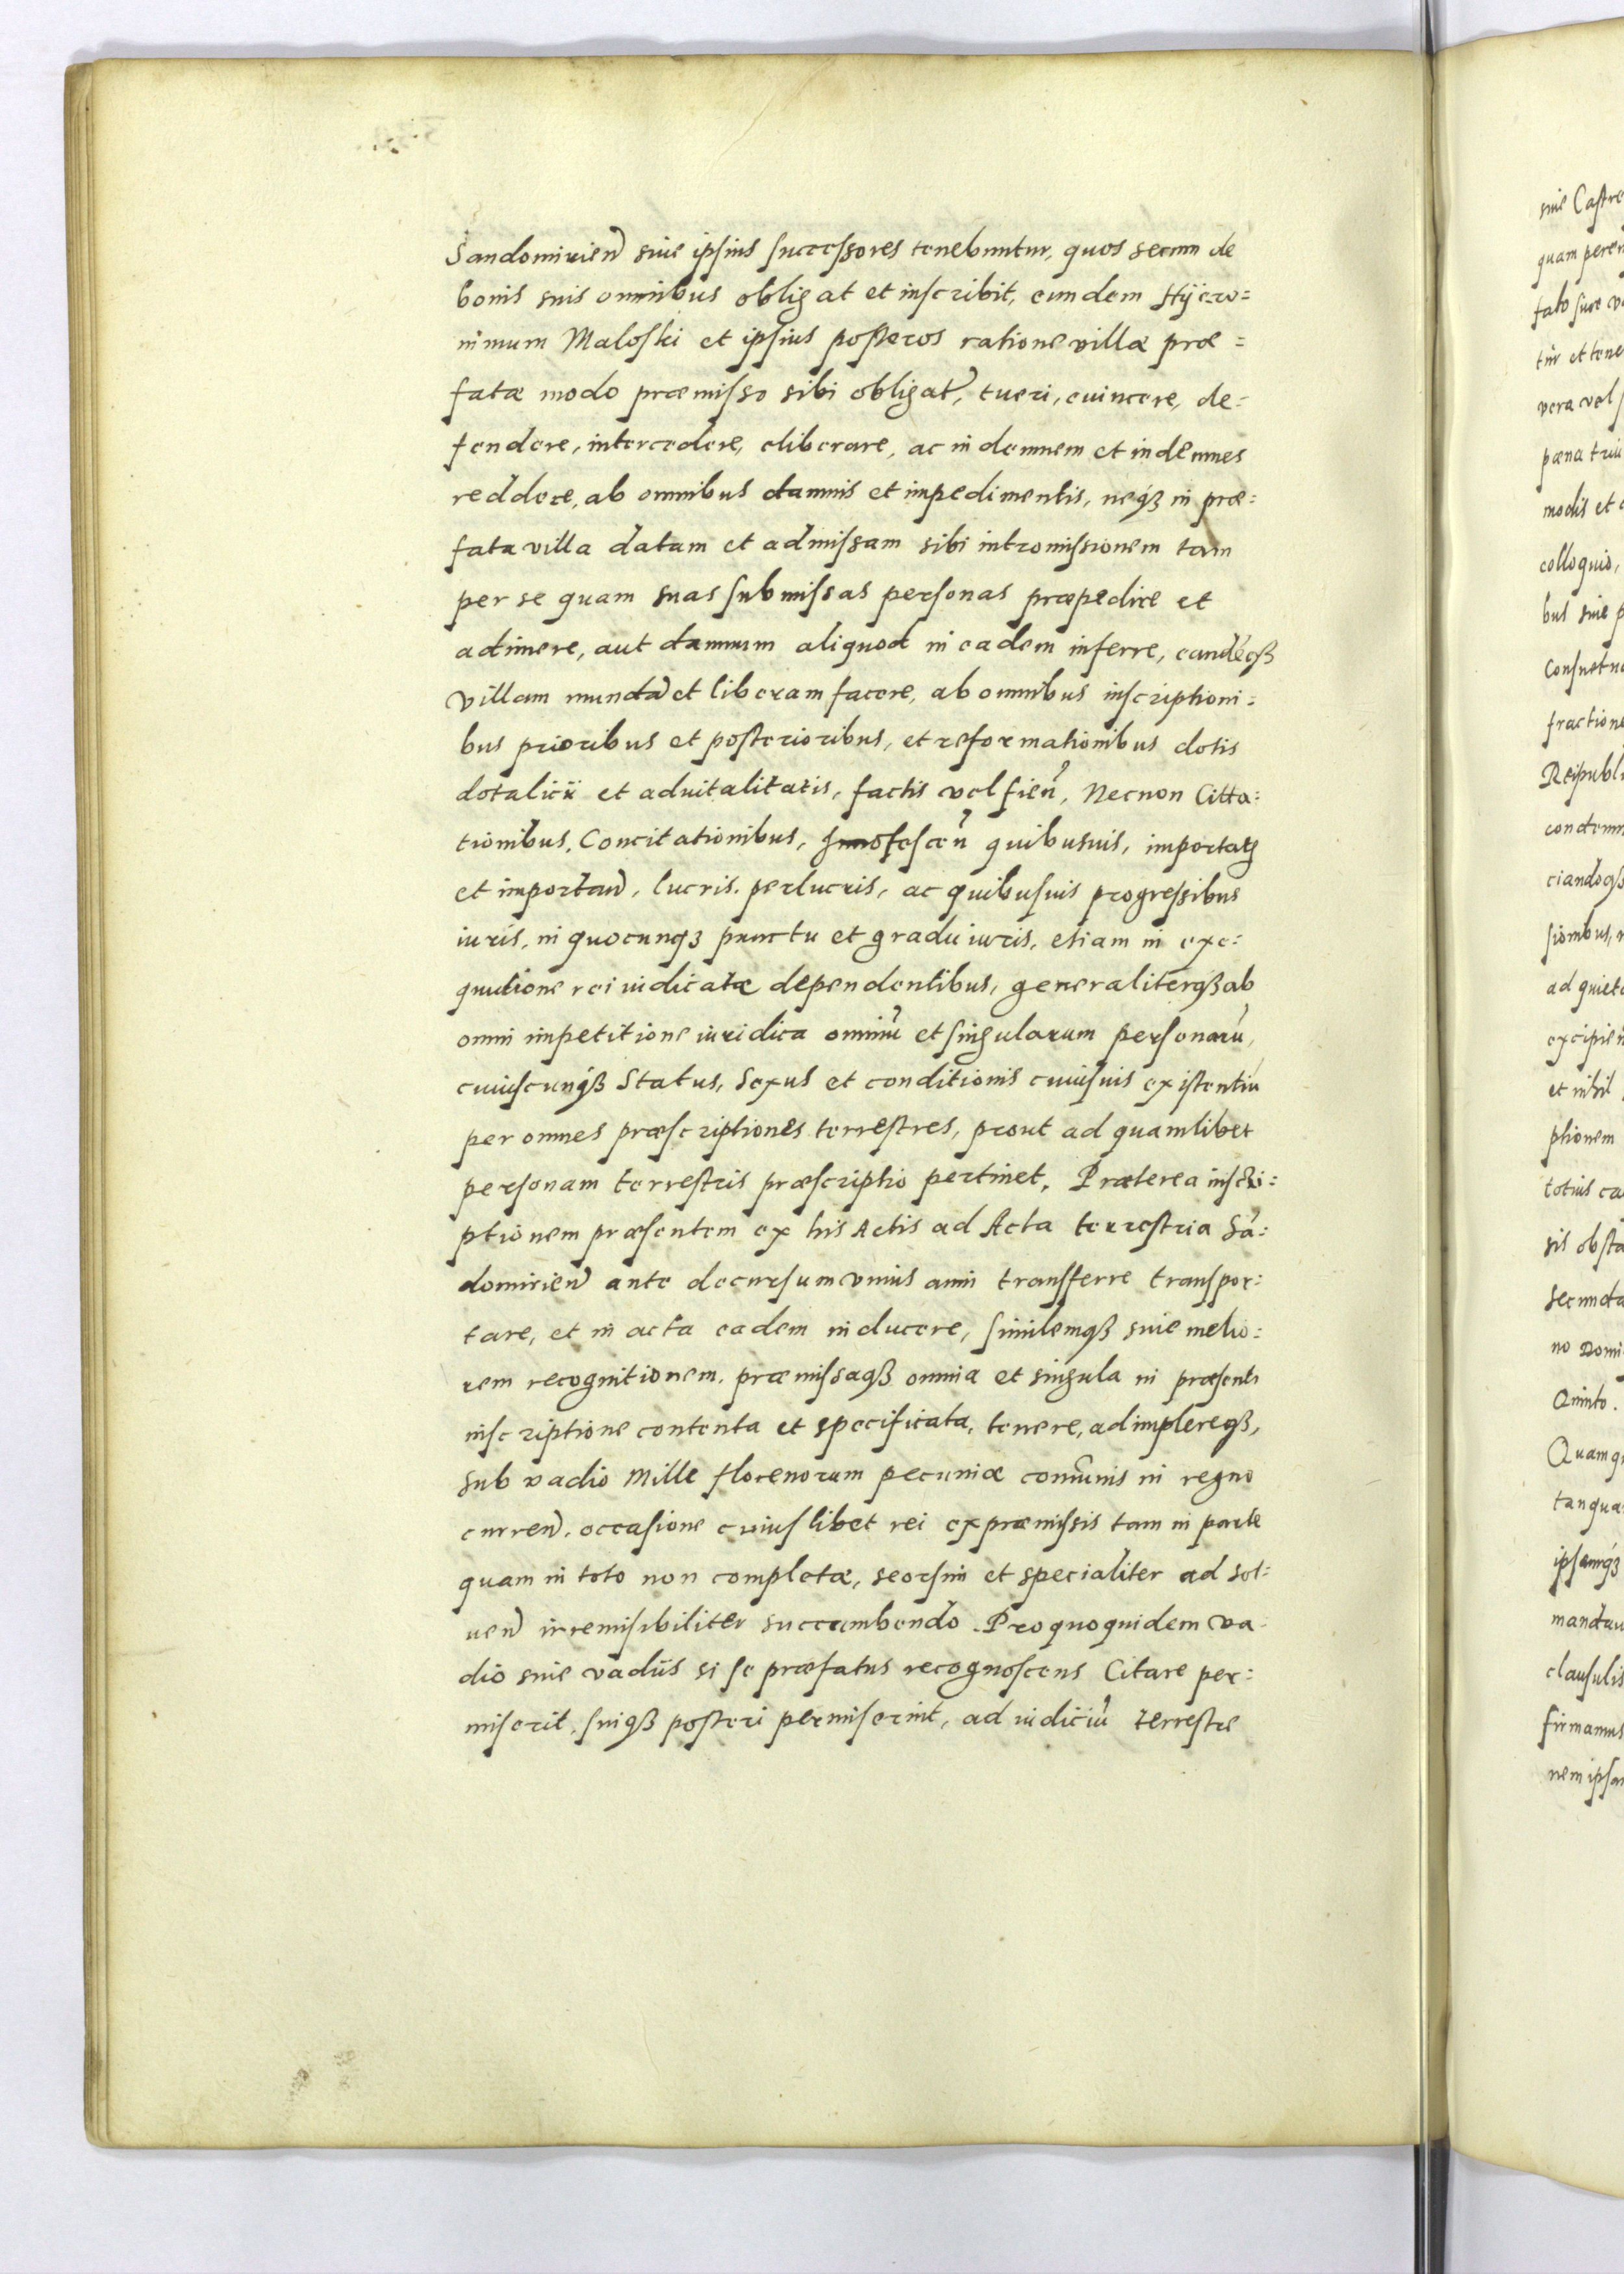 Sandomirien̄ siue ipsius successores tenebuntur, quos secum de
bonis suis omnibus obligat et inscribit, eundem Hijero=
nimum Maloski et ipsius posteros ratione villæ præ=
fatæ modo præmisso sibi obligat̄, tueri, euincere, de=
fendere, intercedere, eliberare, ac indemnem et indemnes
reddere, ab omnibus damnis et impedimentis, neqȝ in præ=
fata villa datam et admissam sibi intromissionem tam
per se quam suas submissas personas præpedire et
adimere, aut damnum aliquod in eadem inferre, eandēqȝ
villam mundā et liberam facere, ab omnibus inscriptioni=
bus prioribus et posterioribus, et reformationibus dotis
dotalicii et aduitalitatis, factis vel fien̄, Necnon Citta=
tionibus, Concitationibus, Innotescen̄ quibusuis, importatȝ
et importan̄, lucris, perlucris, ac quibusuis progressibus
iuris, in quocunqȝ punctu et gradu iuris, etiam in exe=
quutione rei iudicatæ dependentibus, generaliterqȝ ab
omni impetitione iuridica omniū et singularum personarū,
cuiuscunqȝ Status, Sexus et conditionis cuiusuis existentiū
per omnes præscriptiones terrestres, prout ad quamlibet
personam terrestris præscriptio pertinet. Præterea inscri=
ptionem præsentem ex his Actis ad Acta terrestria Sā=
domirien̄ ante decursum vnius anni transferre transpor=
tare, et in acta eadem inducere, similemqȝ siue melio=
rem recognitionem, præmissaqȝ omnia et singula in præsenti
inscriptione contenta et specificata, tenere, adimplereqȝ,
sub vadio Mille florenorum pecuniæ com̄unis in regno
curren̄, occasione cuiuslibet rei ex præmissis tam in parte
quam in toto non completæ, seorsim et specialiter ad sol=
uen̄ irremisibiliter succumbendo. Pro quoquidem va=
dio siue vadiis si se præfatus recognoscens Citare per=
miserit, suiqȝ posteri permiserint, ad iudiciū terrestre